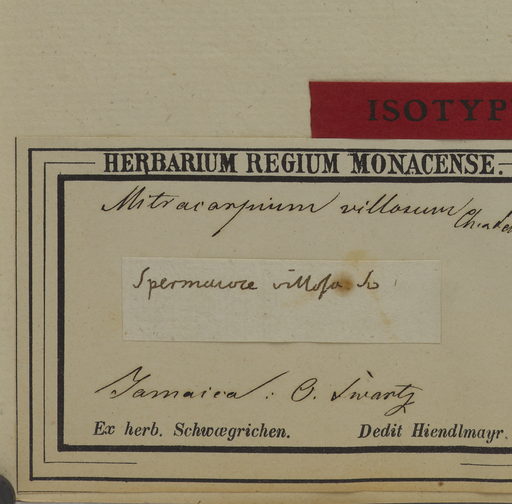 ISOTYP
HERBARIUM REGIUM MONACENSE.
Mitracarpium villosum
Spermacoce villosa Sw
Jamaica. O. Swartz
Ex herb. Schwægrichen. Dedit Hiendlmayr.